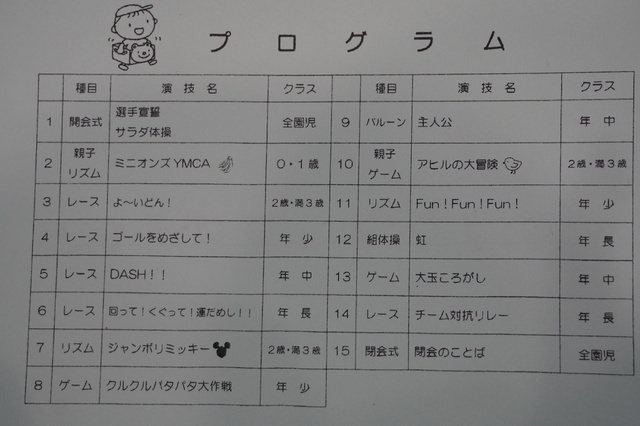 プログラム
種目 演技名 クラス
1 開会式 選手宣誓 サラダ体操 全園児
2 親子リズム ミニオンズYMCA 0・1歳
3 レース よ〜いどん！ 2歳・満3歳
4 レース ゴールをめざして！ 年少
5 レース DASH！！ 年中
6 レース 回って！くぐって！運だめし！！ 年長
7 リズム ジャンボリミッキー 2歳・満3歳
8 ゲーム クルクルパタパタ大作戦 年少
種目 演技名 クラス
9 バルーン 主人公 年中
10 親子ゲーム アヒルの大冒険 2歳・満3歳
11 リズム Fun！Fun！Fun！ 年少
12 組体操 虹 年長
13 ゲーム 大玉ころがし 年中
14 レース チーム対抗リレー 年長
15 閉会式 閉会のことば 全園児